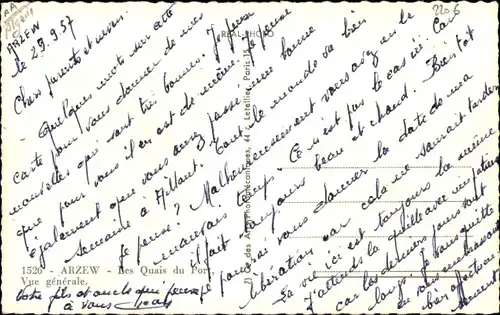 ARZEW
le 29.9.57
Chers parents et
Quelques mots sur cette
carte pour vous donner de mes
nouvelles qui sont très bonnes. J'espère
que pour vous il en est de même. J'espère
également que vous avez passé une bonne
semaine à . Tout le monde va bien
je pense ? Malheureusement vous avez eu le
mauvais temps. Ce n'est pas le cas ici car
il fait toujours beau et chaud. Bientôt
je pourrai vous donner la date de ma
libération car cela ne saurait tarder.
La vie ici est toujours la même
J'attends la quille avec impatience
car les derniers jours sont
longs. Je vous quitte
en vous embrassant
bien affectueusement
Votre fils et oncle qui pense
à vous
REAL-PHOTO
1526 - ARZEW - Les Quais du Port
Vue générale.
206